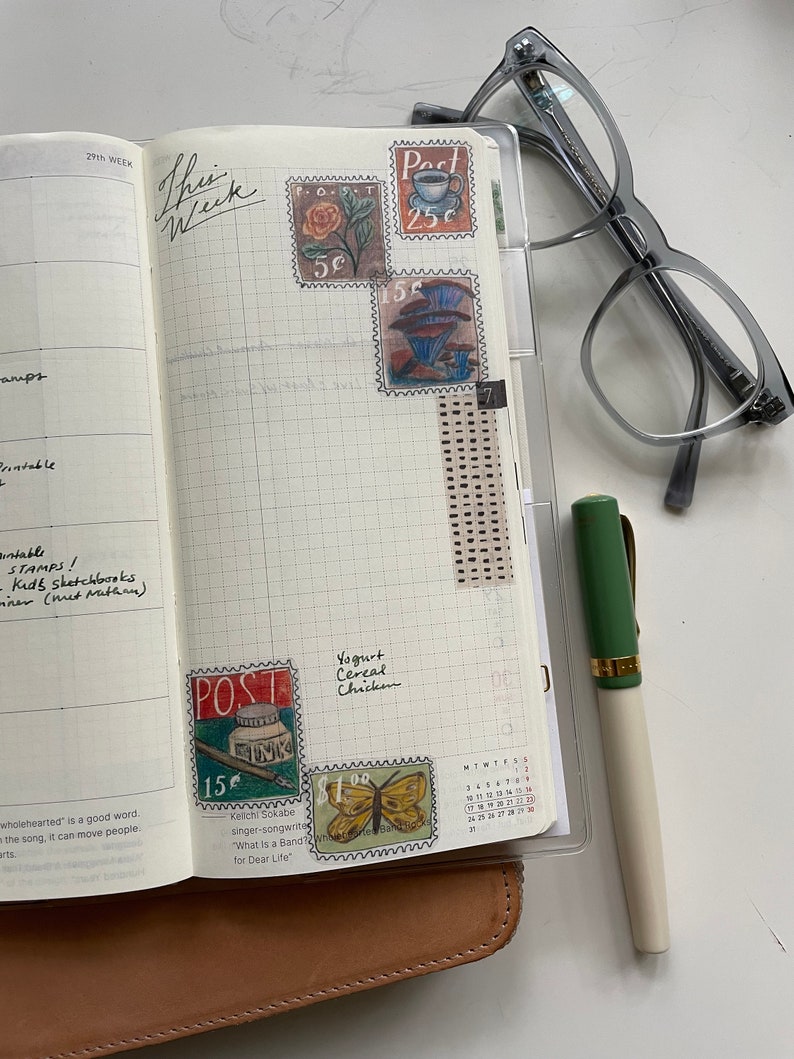 29th WEEK
amps
Printable
intable
STAMPS!
Kids Sketchbooks
nner (met Nathan)
wholehearted" is a good word.
n the song, it can move people.
arts.
This
Week
P.O.S.T
5¢
Post
25¢
15¢
7
Yogurt
Cereal
Chicken
POST
INK
15¢
$1.00
Keiichi Sokabe
singer-songwriter
"What Is a Band?? Wholehearted Band Rocks
for Dear Life"
M T W T F S S
1 2
3 4 5 6 7 8 9
10 11 12 13 14 15 16
17 18 19 20 21 22 23
24 25 26 27 28 29 30
31